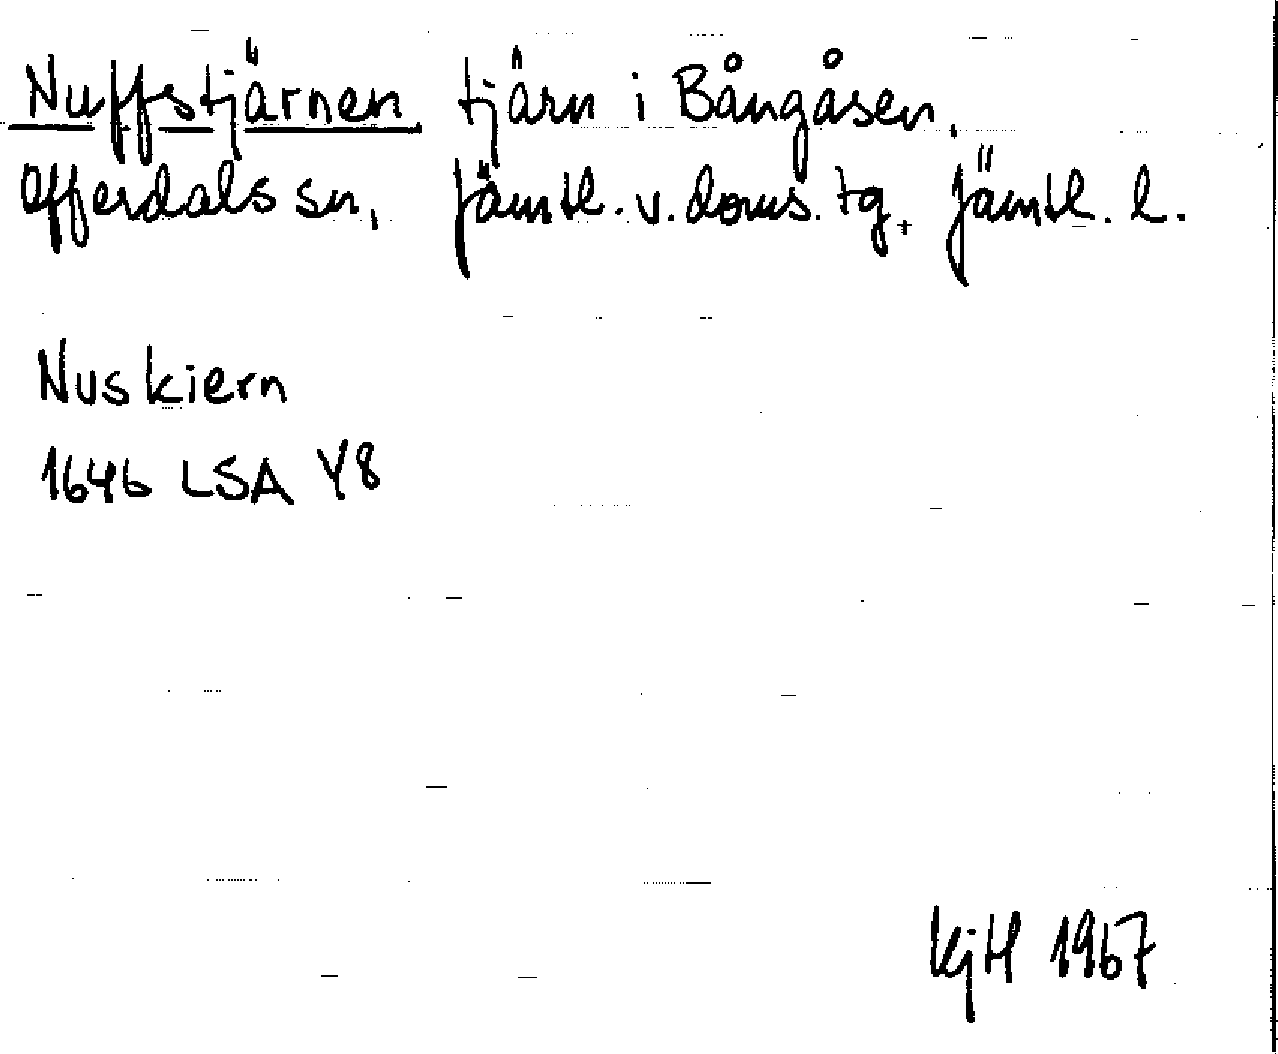 Nuffstjärnen tjärn i Bångåsen,
Offerdals sn, Jämtl. v. doms. tg. Jämtl. l.
Nuskiern
1646 LSA Y8
KjH 1967